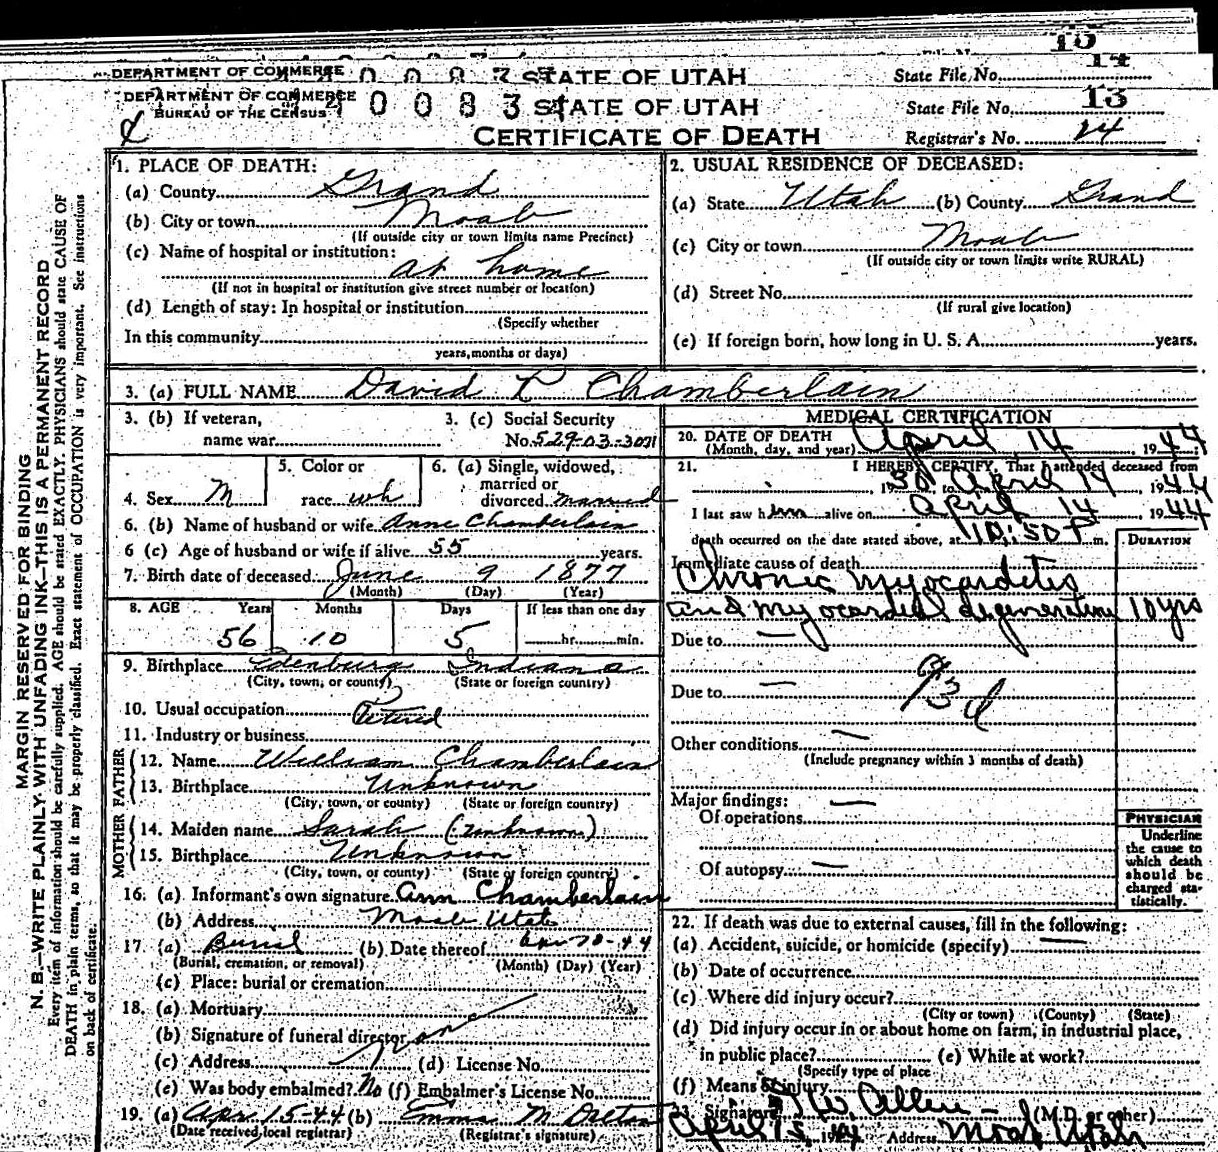 15
State File No. 14
DEPARTMENT OF COMMERCE STATE OF UTAH
DEPARTMENT OF COMMERCE 4 0 0 8 3 STATE OF UTAH State File No. 13
BUREAU OF THE CENSUS
CERTIFICATE OF DEATH Registrar's No. 24
MARGIN RESERVED FOR BINDING
N. B.—WRITE PLAINLY WITH UNFADING INK—THIS IS A PERMANENT RECORD
Every item of information should be carefully supplied. AGE should be stated EXACTLY. PHYSICIANS should state CAUSE OF
DEATH in plain terms, so that it may be properly classified. Exact statement of OCCUPATION is very important. See instructions
on back of certificate.
1. PLACE OF DEATH:
(a) County Grand
(b) City or town Moab
(If outside city or town limits name Precinct)
(c) Name of hospital or institution:
at home
(If not in hospital or institution give street number or location)
(d) Length of stay: In hospital or institution
(Specify whether
In this community
years, months or days)
2. USUAL RESIDENCE OF DECEASED:
(a) State Utah (b) County Grand
(c) City or town Moab
(If outside city or town limits write RURAL)
(d) Street No.
(If rural give location)
(e) If foreign born, how long in U. S. A. years.
3. (a) FULL NAME David L Chamberlain
3. (b) If veteran, 3. (c) Social Security
name war No. 529-03-3071
4. Sex M 5. Color or race wh 6. (a) Single, widowed, married or divorced married
6. (b) Name of husband or wife Anne Chamberlain
6 (c) Age of husband or wife if alive 55 years.
7. Birth date of deceased June 9 1877
(Month) (Day) (Year)
8. AGE Years Months Days If less than one day
56 10 5 hr. min.
9. Birthplace Edenburg Indiana
(City, town, or county) (State or foreign country)
10. Usual occupation Retired
11. Industry or business
FATHER
12. Name William Chamberlain
13. Birthplace Unknown
(City, town, or county) (State or foreign country)
MOTHER
14. Maiden name Sarah (unknown)
15. Birthplace Unknown
(City, town, or county) (State or foreign country)
16. (a) Informant's own signature Ann Chamberlain
(b) Address Moab Utah
17. (a) Burial (b) Date thereof
(Burial, cremation, or removal) (Month) (Day) (Year)
(c) Place: burial or cremation
18. (a) Mortuary
(b) Signature of funeral director
(c) Address (d) License No.
(e) Was body embalmed? No (f) Embalmer's License No.
19. (a) Apr. 15-44 (b) Emma M. Dalton
(Date received local registrar) (Registrar's signature)
MEDICAL CERTIFICATION
20. DATE OF DEATH April 14 1944
(Month, day, and year)
21. I HEREBY CERTIFY, That I attended deceased from
, 1930, to April 14, 1944
I last saw him alive on April 14 1944
death occurred on the date stated above, at 10:50 P m. DURATION
Immediate cause of death
Chronic Myocardetis
and myocardial degeneration 10 yrs
Due to —
Due to — 93d
Other conditions —
(Include pregnancy within 3 months of death)
Major findings: —
Of operations
Of autopsy —
PHYSICIAN
Underline
the cause to
which death
should be
charged sta-
tistically.
22. If death was due to external causes, fill in the following:
(a) Accident, suicide, or homicide (specify) —
(b) Date of occurrence
(c) Where did injury occur?
(City or town) (County) (State)
(d) Did injury occur in or about home on farm, in industrial place,
in public place? (e) While at work?
(Specify type of place
(f) Means of injury
23. Signature Allen (M.D. or other)
April 15, 1944 Address Moab Utah